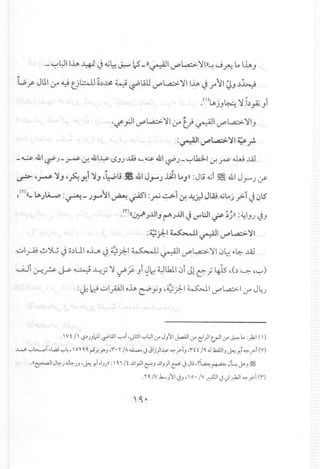 وهذا ما يعرف بـ«الاختصاص القيمي» - كما سبق بيانه في تمهيد هذا الباب -
فيحدد ولي الأمر في هذا الاختصاص للقاضي قيمة محددة للمتنازع فيه من المال عرضاً
أو نقوداً لا يتجاوزها(١).
والاختصاص القيمي فرع من الاختصاص النوعي.
شرعية الاختصاص القيمي:
لقد فعله عمر بن الخطاب - رضي الله عنه - فقد روى عبدالله بن عمر - رضي الله عنه -
عن رسول الله ﷺ أنه قال: «وما اتخذ رسول الله ﷺ قاضياً، ولا أبو بكر، ولا عمر، حتى
كان في آخر زمانه قال ليزيد بن أخت نمر: اكفني بعض الأمور - يعني: صغارها -»(٢)،
وفي رواية: «رُدَّ عني الناس في الدرهم والدرهمين»(٣).
الاختصاص القيمي للمحكمة الجزئية:
لقد جاء بيان الاختصاص القيمي للمحكمة الجزئية في هذه المادة في ثلاث فقرات
(ب، ج، د)، كلها ترجع إلى أن المطالبة بمال أو عرض لا تزيد قيمته على عشرين ألف
ريال من اختصاص المحكمة الجزئية، ونوضح هذه الفقرات فيما يلي:
(١) انظر: ما سبق من النوع الرابع من الفصل الأول من الباب الثاني، أدب القاضي للماوردي ١/ ١٧٤.
(٢) أخرجه أبو يعلى واللفظ له ٩/ ٣٤٤، وأخرجه عبدالرزاق في مصنفه ٨/ ٣٠٢، وهو برقم ١٥٢٩٩، باب قضاء أصحاب محمد
ﷺ وهل يسأل بعضهم بعضاً؟، قال في مجمع الزوائد ومنبع الفوائد ٤/ ١٩٦: «رواه أبو يعلى، ورجاله رجال الصحيح».
(٣) أخرجه الطبراني في الكبير ٧/ ١٥٠، وفي الأوسط ٧/ ٢٩.
١٩٠